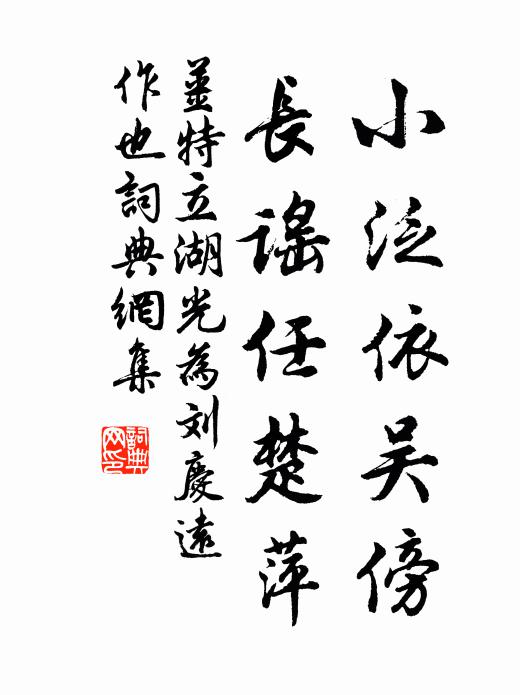 小泛依吴傍
長謡任楚萍
薑特立湖光為刘慶遠
作也詞典網集
詞典
网印